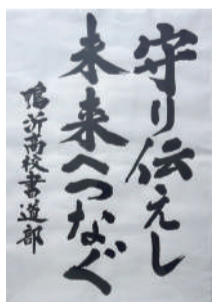 守り伝えし
未来へつなぐ
鴨沂高校書道部